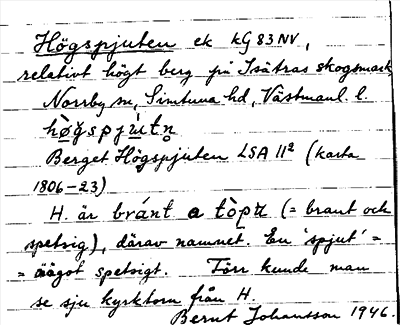 Högspjuten ek kG 83 NV,
relativt högt berg på Isätras skogsmark
Norrby sn, Simtuna hd, Västmanl. l.
hö̀gspju̇tn̥
Berget Högspjuten LSA 11² (karta
1806-23)
H. är bránt a tòpu (= brant och
spetsig), därav namnet. En 'spjut' =
= något spetsigt. Förr kunde man
se sju kyrktorn från H.
Bernt Johansson 1946.